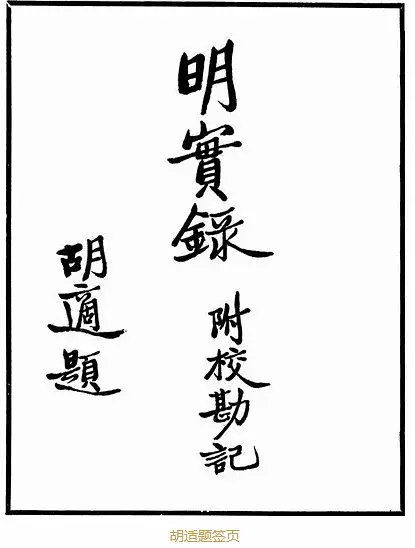 明實錄
附校勘記
胡適題
胡适题签页